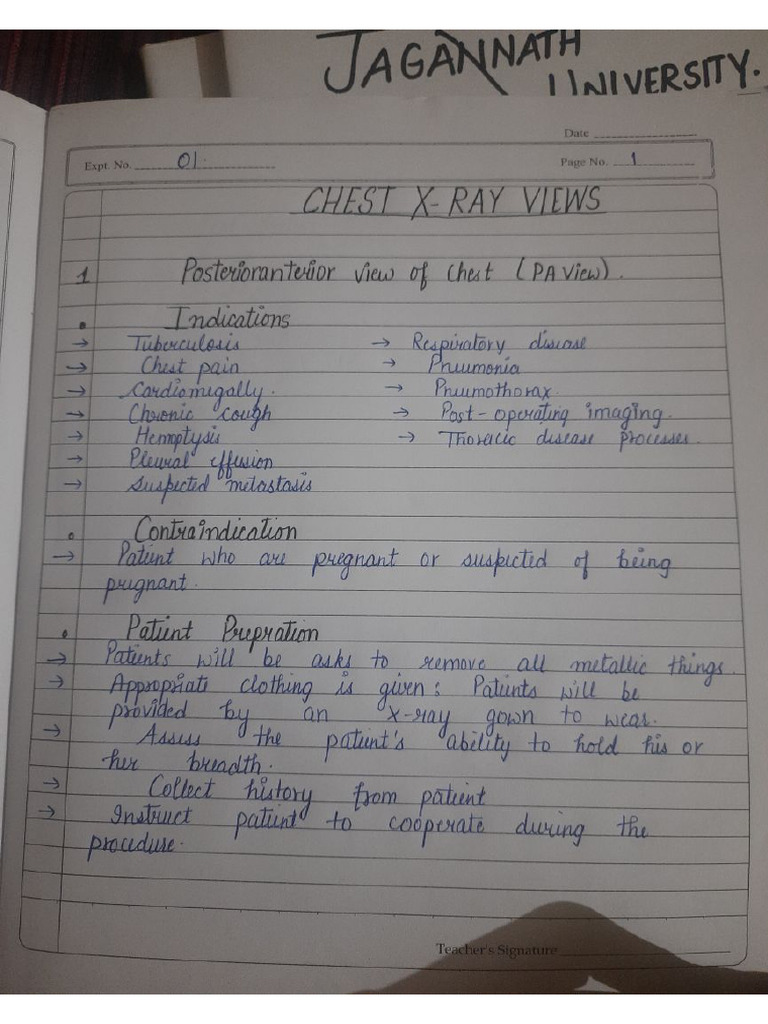 JAGANNATH
UNIVERSITY.
Date
Expt. No. 01.
Page No. 1
CHEST X-RAY VIEWS
1 Posterioranterior view of chest (PA View).
• Indications
→ Tuberculosis → Respiratory disease
→ Chest pain → Pneumonia
→ Cardiomegally. → Pneumothorax.
→ Chronic cough → Post-operating imaging.
→ Hemoptysis → Thoracic disease processes.
→ Pleural effusion
→ Suspected metastasis
• Contraindication
→ Patient who are pregnant or suspected of being
pregnant.
• Patient Prepration
→ Patients will be asks to remove all metallic things.
→ Appropriate clothing is given: Patients will be
provided by an x-ray gown to wear.
→ Assess the patient's ability to hold his or
her breadth.
→ Collect history from patient
→ Instruct patient to cooperate during the
procedure.
Teacher's Signature